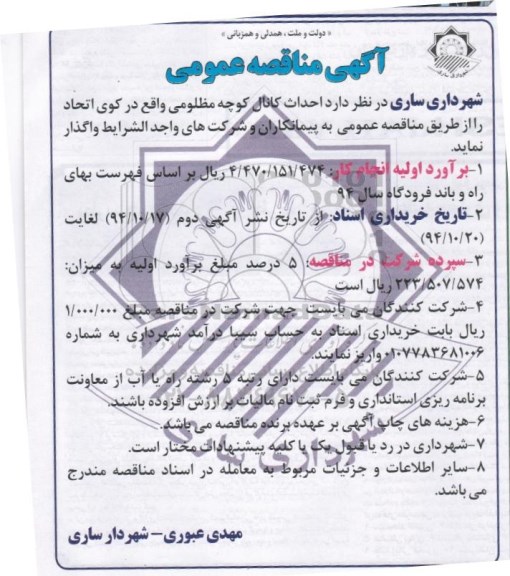 « دولت و ملت ، همدلی و همزبانی »
آگهی مناقصه عمومی
شهرداری ساری در نظر دارد احداث کانال کوچه مظلومی واقع در کوی اتحاد
را از طریق مناقصه عمومی به پیمانکاران و شرکت های واجد الشرایط واگذار
نماید.
۱-برآورد اولیه انجام کار: ۴/۴۷۰/۱۵۱/۴۷۴ ریال بر اساس فهرست بهای
راه و باند فرودگاه سال ۹۴
۲-تاریخ خریداری اسناد: از تاریخ نشر آگهی دوم (۹۴/۱۰/۱۷) لغایت
(۹۴/۱۰/۲۰)
۳-سپرده شرکت در مناقصه: ۵ درصد مبلغ برآورد اولیه به میزان:
۲۲۳/۵۰۷/۵۷۴ ریال است
۴-شرکت کنندگان می بایست جهت شرکت در مناقصه مبلغ ۱/۰۰۰/۰۰۰
ریال بابت خریداری اسناد به حساب سیبا درآمد شهرداری به شماره
۰۱۰۷۷۸۳۶۸۱۰۰۶ واریز نمایند.
۵-شرکت کنندگان می بایست دارای رتبه ۵ رشته راه یا آب از معاونت
برنامه ریزی استانداری و فرم ثبت نام مالیات بر ارزش افزوده باشند.
۶-هزینه های چاپ آگهی بر عهده برنده مناقصه می باشد.
۷-شهرداری در رد یا قبول یک یا کلیه پیشنهادات مختار است.
۸-سایر اطلاعات و جزئیات مربوط به معامله در اسناد مناقصه مندرج
می باشد.
مهدی عبوری – شهردار ساری